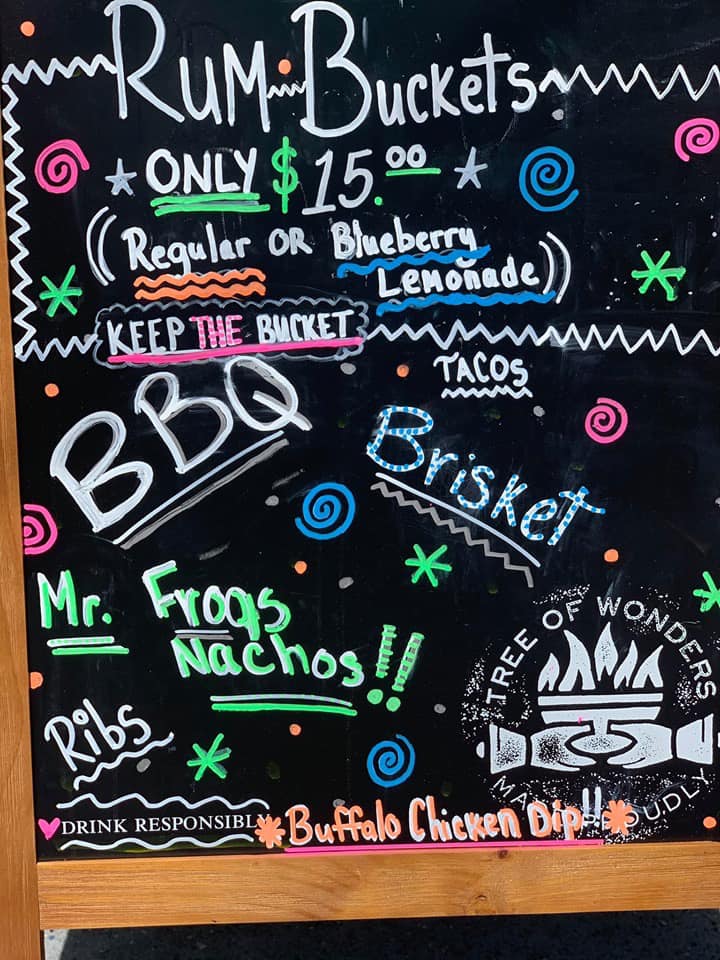 Rum Buckets
ONLY $15.00
(Regular OR Blueberry
Lemonade)
KEEP THE BUCKET
TACOS
BBQ
Brisket
Mr. Frogs
Nachos!!
TREE OF WONDERS
Ribs
DRINK RESPONSIBLY
Buffalo Chicken Dip!!